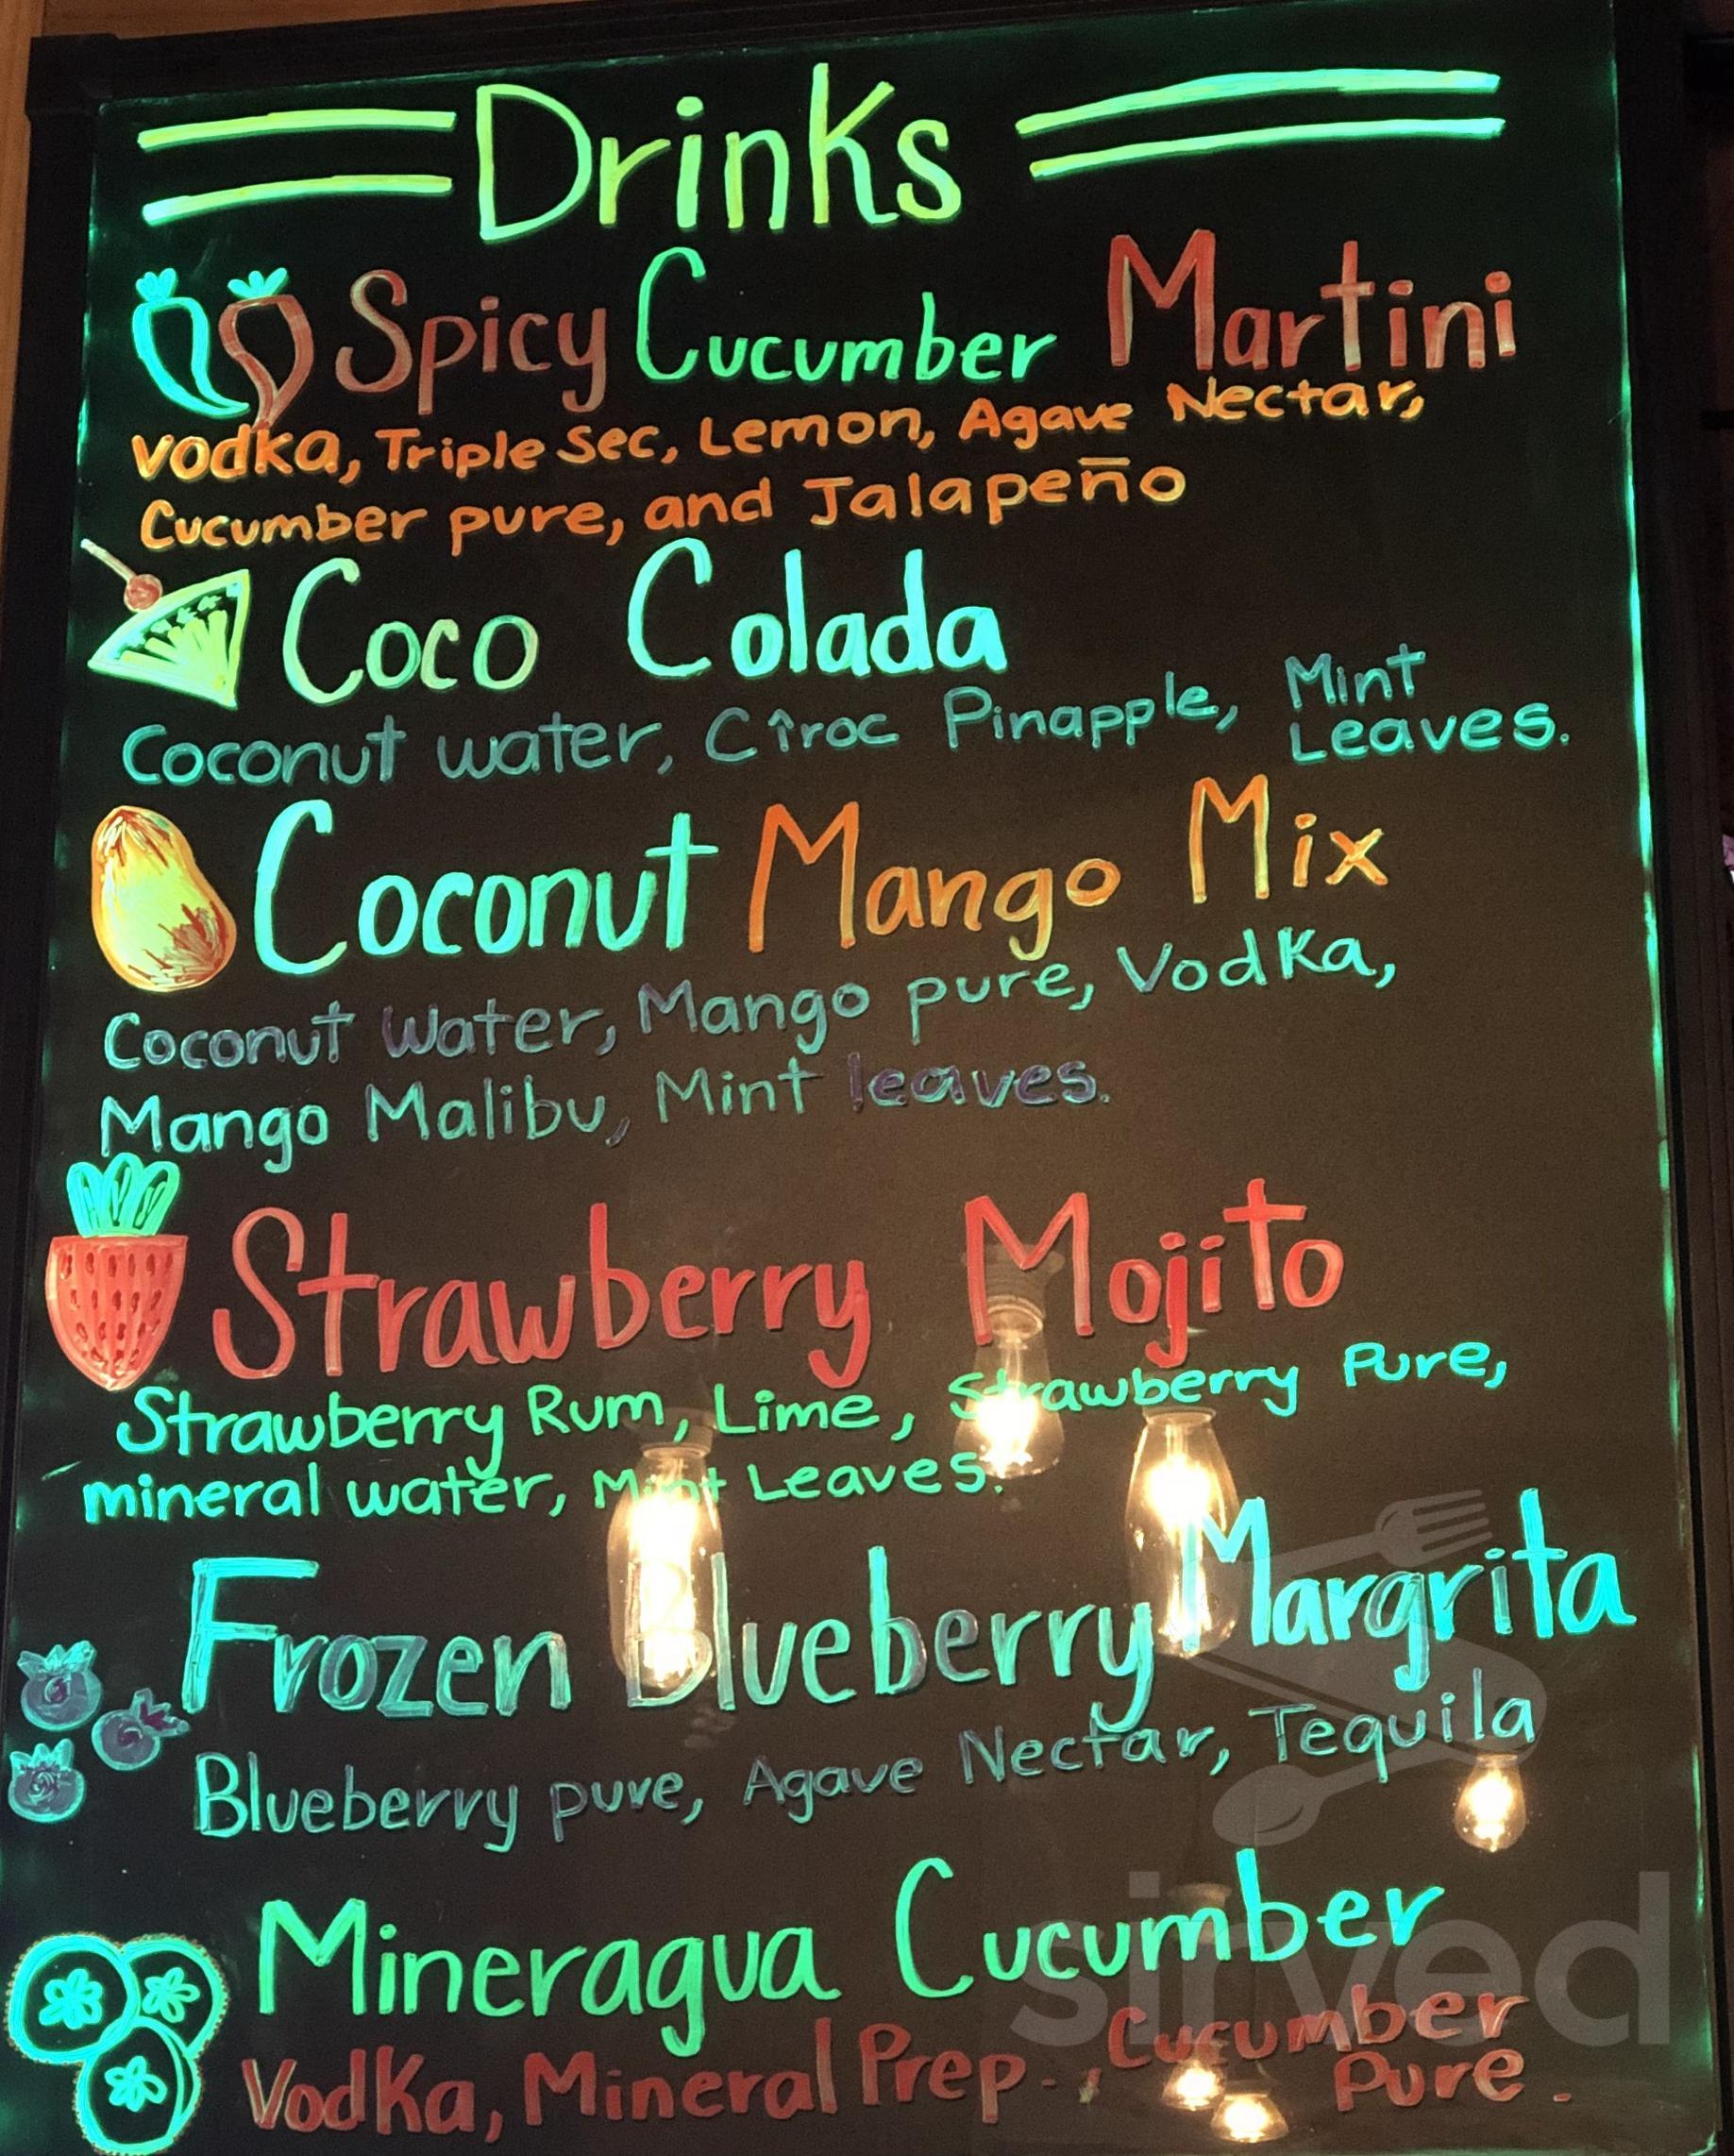 Drinks
Spicy Cucumber Martini
Vodka, Triple Sec, Lemon, Agave Nectar,
Cucumber pure, and Jalapeño
Coco Colada
Coconut water, Cîroc Pinapple, Mint
Leaves.
Coconut Mango Mix
Coconut Water, Mango pure, Vodka,
Mango Malibu, Mint leaves.
Strawberry Mojito
Strawberry Rum, Lime, Strawberry Pure,
mineral water, Mint Leaves.
Frozen Blueberry Margrita
Blueberry pure, Agave Nectar, Tequila
Mineragua Cucumber
Vodka, Mineral Prep., Cucumber
Pure.
sirved